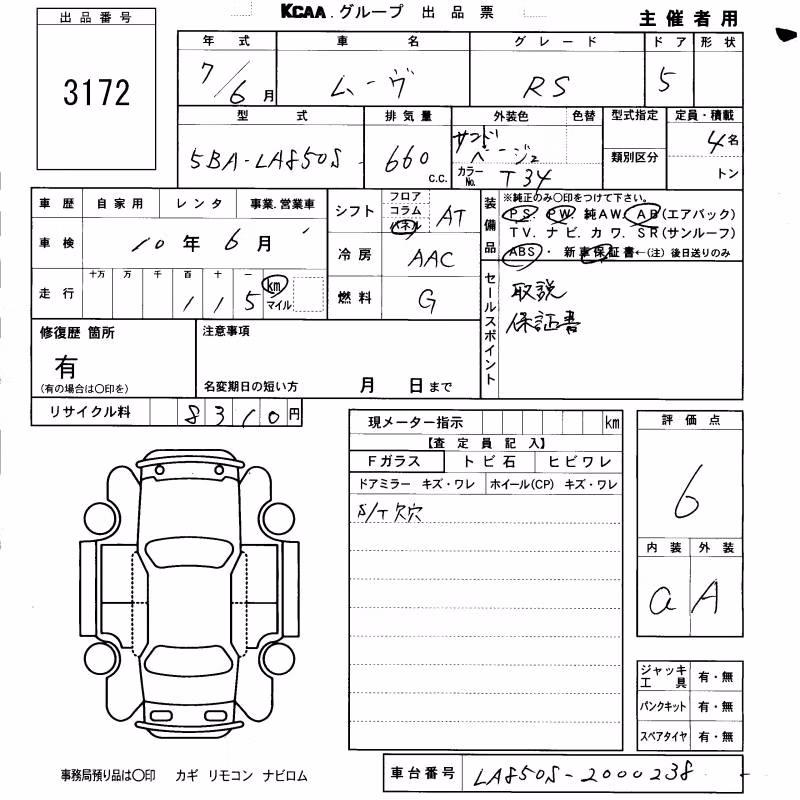 KCAA.グループ 出品票
主催者用
出品番号
3172
年式 車名 グレード ドア 形状
7/6月 ムーヴ RS 5
型式 排気量 外装色 色替 型式指定 定員・積載
5BA-LA850S 660 c.c. サンドベージュ 4名
カラーNo. T34 類別区分 トン
車歴 自家用 レンタ 事業.営業車
車検 10年6月
走行 十万 万 千 百 十 一 km マイル
115
シフト フロア コラム パネル AT
冷房 AAC
燃料 G
装備品 ※純正のみ〇印をつけて下さい。
PS PW 純AW. AB(エアバック)
TV. ナビ. カワ. SR(サンルーフ)
ABS・ 新車保証書←(注) 後日送りのみ
セールスポイント
取説
保証書
修復歴 箇所
有
(有の場合は〇印を)
注意事項
名変期日の短い方 月 日まで
リサイクル料 8310円
現メーター指示 km
【査定員記入】
Fガラス トビ石 ヒビワレ
ドアミラー キズ・ワレ ホイール(CP) キズ・ワレ
S/T 穴
評価点
6
内装 外装
a A
ジャッキ工具 有・無
パンクキット 有・無
スペアタイヤ 有・無
事務局預り品は〇印 カギ リモコン ナビロム
車台番号 LA850S-2000238